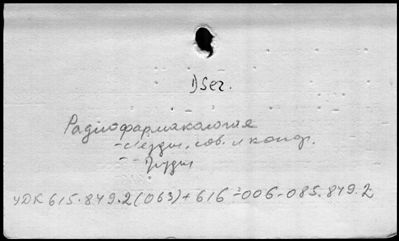 Dser.
Радиофармакология
- съезды, сов. и конф.
- - Труды
УДК 615.849.2(063)+616-006-085.849.2